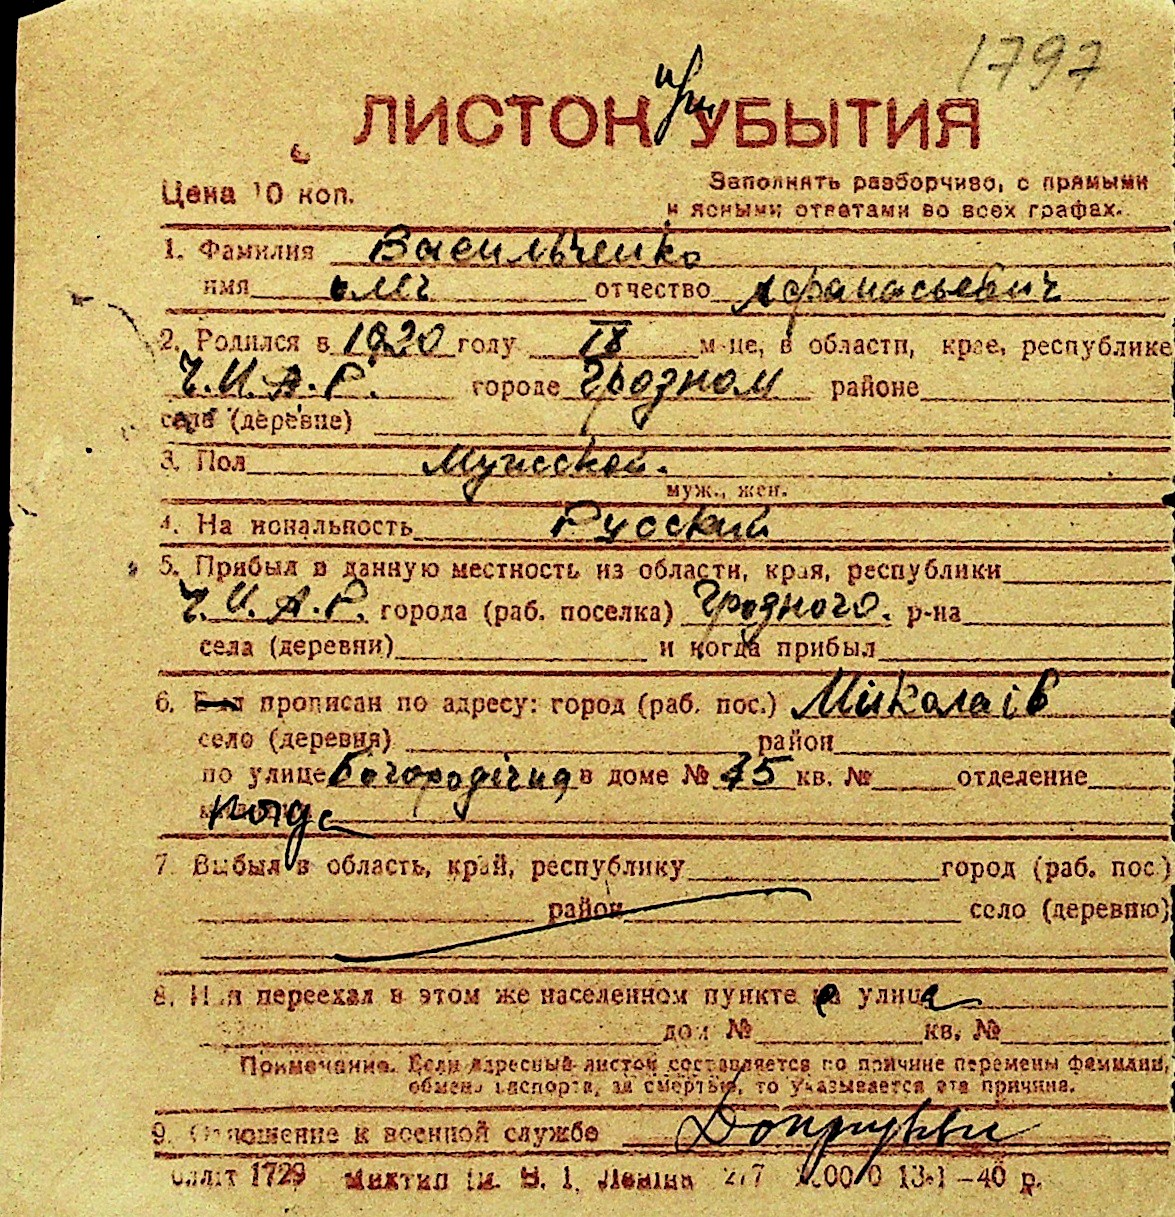 1797
ЛИСТОК при УБЫТИЯ
Цена 10 коп.
Заполнять разборчиво, с прямыми
и ясными ответами во всех графах.
1. Фамилия Васильченко
имя Олег отчество Афанасьевич
2. Родился в 1920 году IX м-це, в области, крае, республике
Ч.И.А.Р. городе Грозном районе
село (деревне)
3. Пол Мужской.
муж., жен.
4. Национальность Русский
5. Прибыл в данную местность из области, края, республики
Ч.И.А.Р. города (раб. поселка) Грозного. р-на
села (деревни) и когда прибыл
6. Был прописан по адресу: город (раб. пос.) Міколаїв
село (деревня) район
по улице Богородічна в доме № 45 кв. № отделение
7. Выбыл в область, край, республику город (раб. пос.)
район село (деревню)
8. Или переехал в этом же населенном пункте на улицу
дом № кв. №
Примечание. Если адресный листок составляется по причине перемены фамилии,
обмена паспорта, за смертью, то указывается эта причина.
9. Отношение к военной службе Допризывн
1729 им. В. І. Леніна 13-I-40 р.